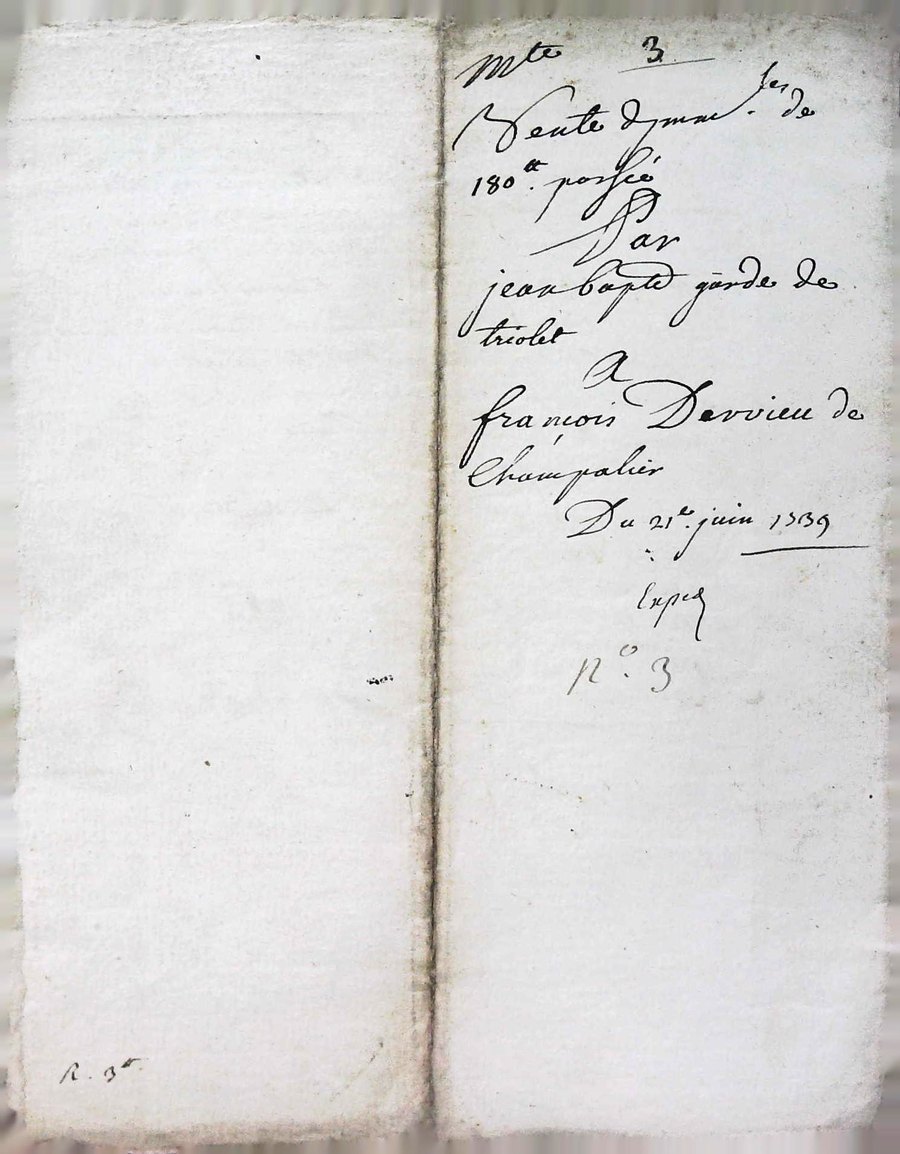 mte 3
Vente dimm.les de
180tt. passée
Par
jean bapte garde de
triolet
A
francois Dervieu de
Champalier
Du 21e. juin 1739
Exped
N°. 3
R. 3tt